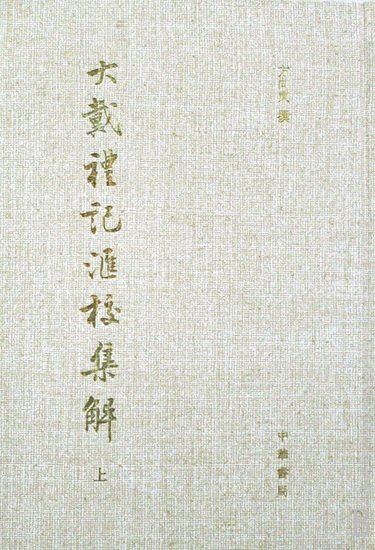 方向東 撰
大戴禮記滙校集解
上
中華書局